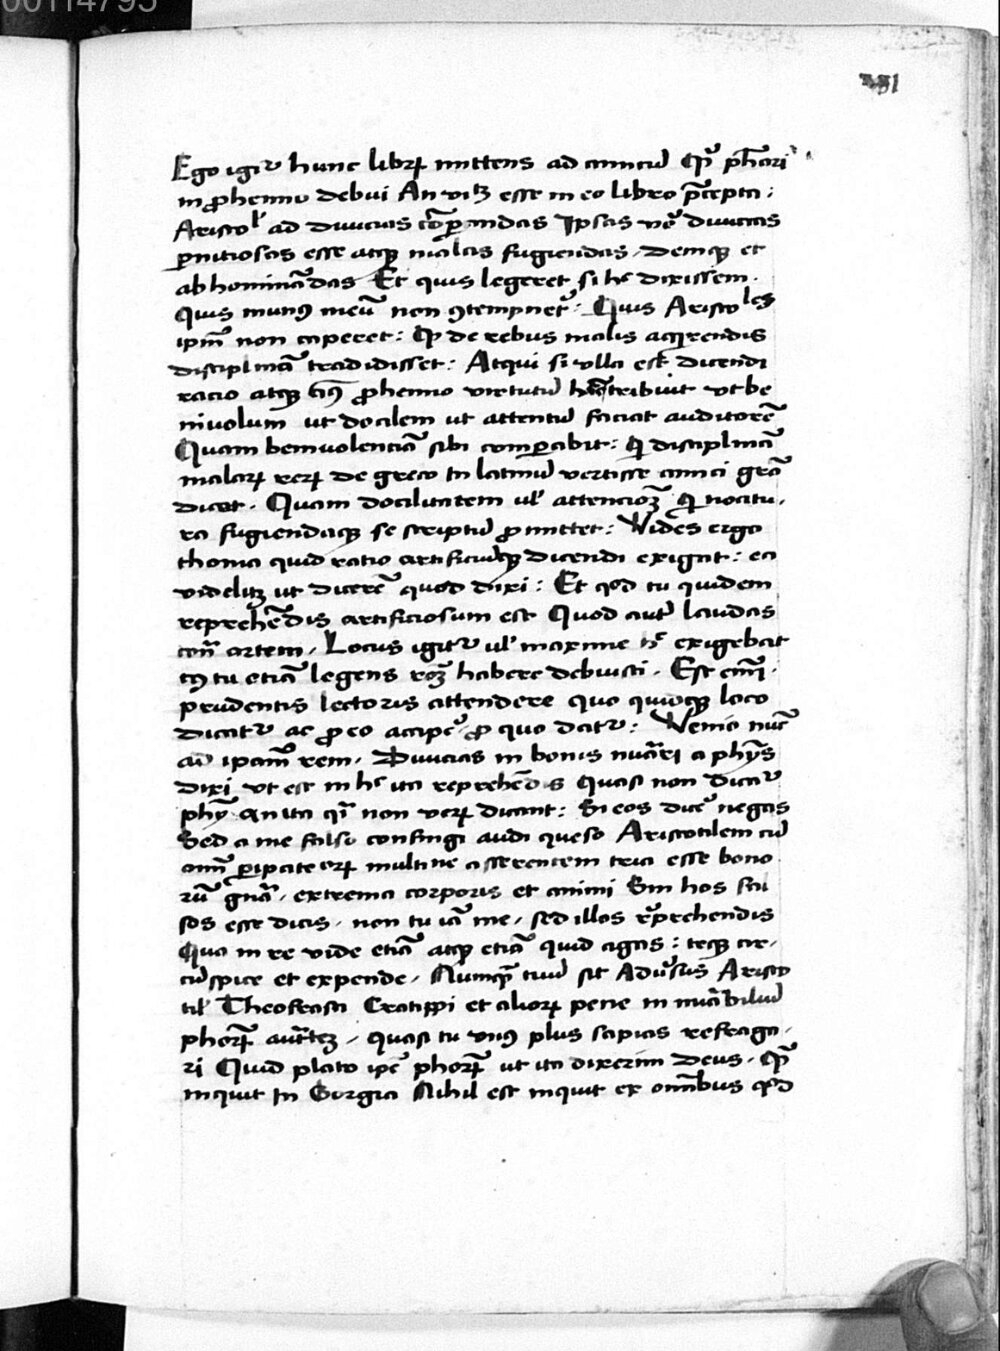 00114795
Ego igit᷑ hunc libꝝ mittens ad amicū
in ꝓhemio debui An vitꝫ esse in eo libro p̄cepta :
Aristol ad diuicias cōꝑandas Ipsas vͦ diuicias
ꝑnitiosas esse atqꝫ malas fugiendas . deniqꝫ et
abhominādas Et quis legeret si hͨ dixissem .
Quis munꝰ meū non ꝯtempnet᷑ : Quis Aristoles
ipm̄ non caperet : de rebus malis acqͥrendis
disciplinā tradidisset : Atqui si vlla est dicendi
racio atqꝫ ꝓhemio virtutū tribuit vt be
niuolum ut docilem ut attentū faciat auditorē
Quam beniuolenciā sibi comꝑabit : qͥ disciplinā
malaꝝ reꝝ de greco in latinū vertisse amici grā
dicat . Quam docilitatem ul attencioꝫ qͥ nocitu .
ra fugiendaqꝫ se scriptū ꝓmittet : Vides ergo
thoma quid ratio artificiūqꝫ dicendi exigat : ea
videlitꝫ ut dicerē quod dixi : Et qod tu quidem
reprehēdis artificiosum est Quod aut̄ laudas
con̄ artem . Locus igit᷑ ul maxime hͨ exigebat
ꝙ tu etiā legens roꝫ habere debuisti . Est eni̅ .
prudentis lectoris attendere quo quoqꝫ loco
dicat᷑ ac ꝓ eo accipe ꝓ quo dcat᷑ : Venio nūc
ad ipam̄ rem . Diuicias in bonis nūari a phys
dixi vt est in hͨ ita reprehēdis quasi non dicat᷑
phy an ita qͣ non veꝝ dicant : Si eos dice negas
Sed a me falso confingi audi queso Aristotilem cū
om̄ ꝑipateti eꝝ multi ne asserentem tria esse bono
rū gn̄a . extrema corporis et animi Sin hos fal
sos esse dicis . non tu iā me . sed illos rp̄rehendis
Qua in re vide etiā atqꝫ etiā quid agas : teqꝫ cir .
cūspice et expende . Numqͣ tuū sit Aduersus Aristo
til Theofrasti Cratippi et alioꝝ pene in nūabiliū
phoꝝ aut̄tez . quasi tu vnꝰ plus sapias refraga .
ri Quid plato ip̄e phoꝝ ut ita dixerim deus .
inquit In Gorgia Nihil est inquit ex omībus qͦd